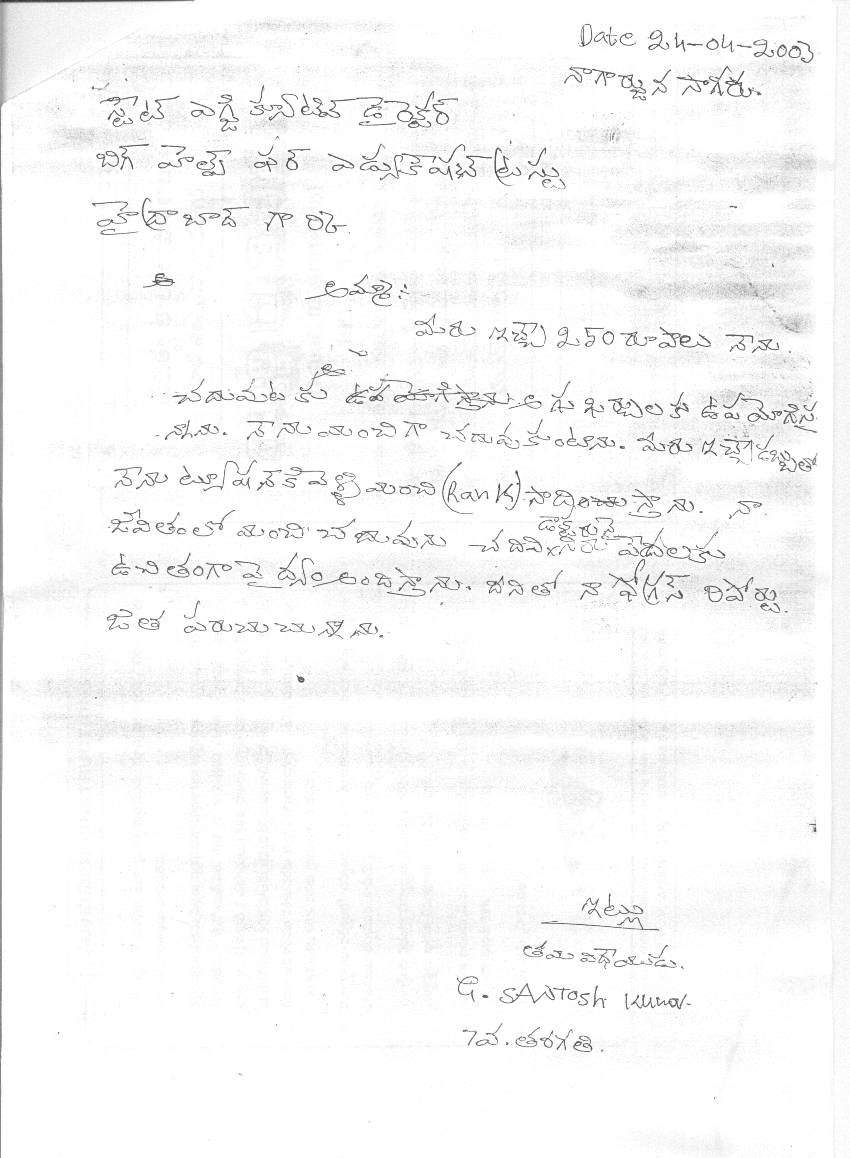 Date 24-04-2003
నాగార్జున సాగరు.
స్టేట్ ఎగ్జిక్యూటివ్ డైరెక్టర్
బిగ్ హెల్ప్ ఫర్ ఎడ్యుకేషన్ ట్రస్టు
హైద్రాబాద్ గారికి
అమ్మా:
మీరు ఇచ్చే 250 రూపాలు నేను.
చదుమటకు అగు ఖర్చులకు ఉపయోగిస్తు
న్నాను. నేను మంచిగా చదువుకుంటాను. మీరు ఇచ్చే డబ్బుతో
నేను ట్యూషన్‌కి వెళ్ళి మంచి (Rank) సాధించుస్తాను. నా
జీవితంలో మంచి చదువును చదివి డాక్టరునై పేదలకు
ఉచితంగా వైద్యం అందిస్తాను. దీనితో నా ప్రోగ్రెస్ రిపోర్టు
జత పరుచుచున్నాను.
ఇట్లు
తమ విధేయుడు.
G. SANTOSH Kumar.
7వ. తరగతి.